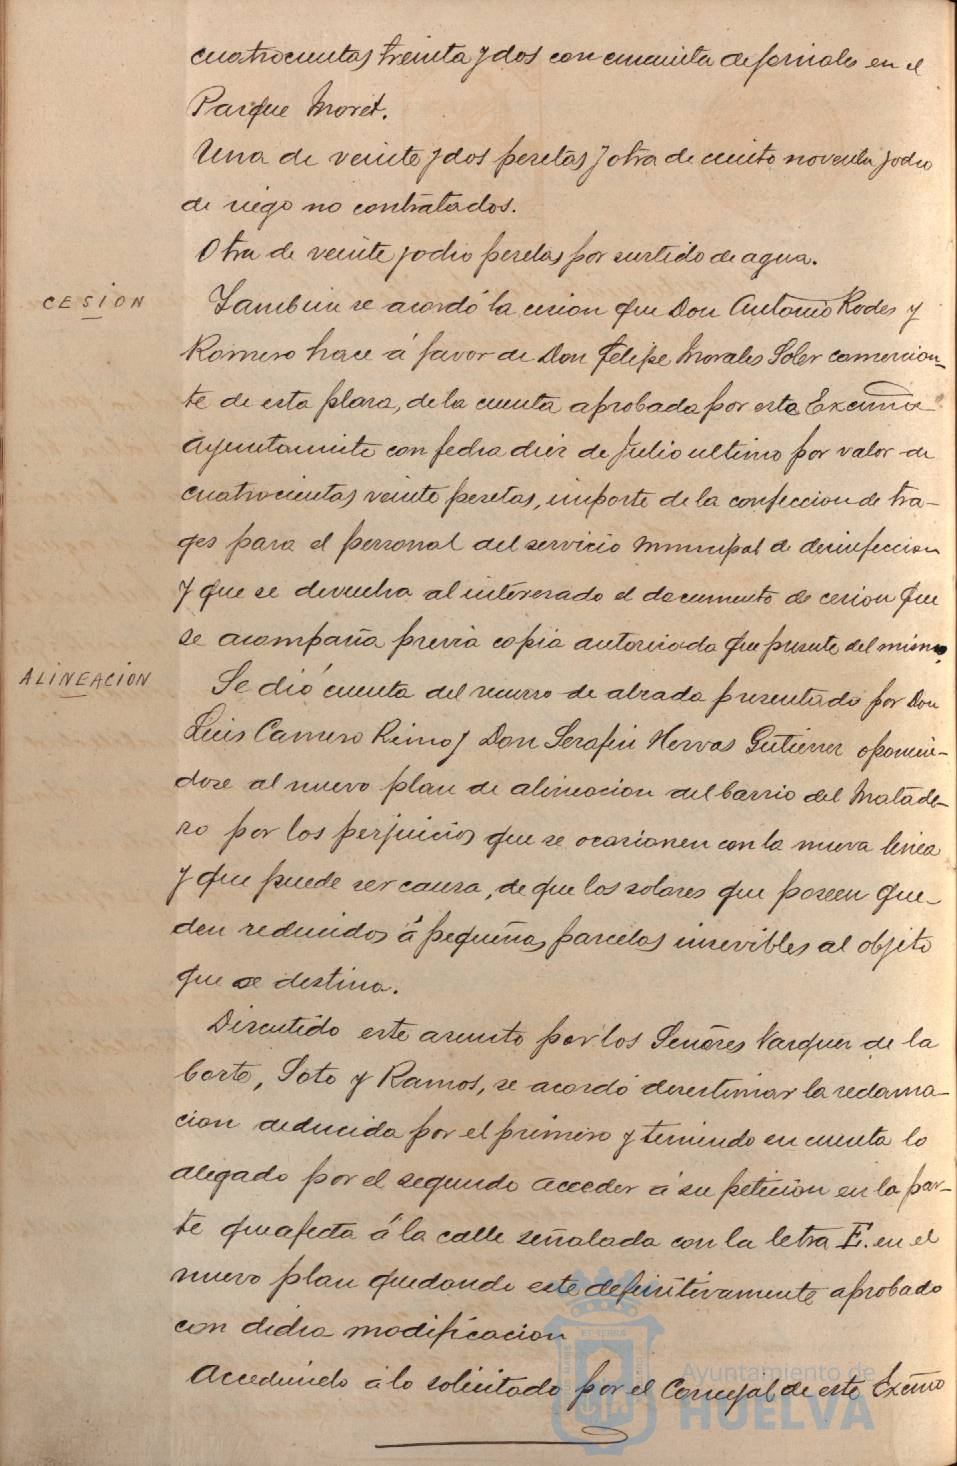 cuatrocientas treinta y dos con cincuenta de jornales en el
Parque Moret.
Una de veinte y dos pesetas y otra de ciento noventa y ocho
de riego no contratados.
Otra de veinte y ocho pesetas por surtido de agua.
CESION
Tambien se acordó la cesion que Don Antonio Rodes y
Romero hace á favor de Don Felipe Morales Soler comercian-
te de esta plaza, de la cuenta aprobada por este Excmo
Ayuntamiento con fecha diez de Julio ultimo por valor de
cuatrocientas veinte pesetas, importe de la confeccion de tra-
ges para el personal del servicio municipal de desinfeccion
y que se devuelva al interesado el documento de cesion que
se acompaña previa copia autorizada que presente del mismo.
ALINEACION
Se dió cuenta del recurso de alzada presentado por Don
Luis Camero Reino y Don Serafin Hervas Gutierrez oponien-
dose al nuevo plan de alineacion del barrio del Matade-
ro por los perjuicios que se ocasionen con la nueva linea
y que puede ser causa, de que los solares que poseen que-
den reducidos á pequeñas parcelas inservibles al objeto
que se destina.
Discutido este asunto por los Señores Vazquez de la
Corte, Soto y Ramos, se acordó desestimar la reclama-
cion deducida por el primero y teniendo en cuenta lo
alegado por el segundo acceder á su peticion en la par-
te que afecta á la calle señalada con la letra E. en el
nuevo plan quedando este definitivamente aprobado
con dicha modificacion
Accediendo á lo solicitado por el Concejal de este Excmo
Ayuntamiento de
HUELVA